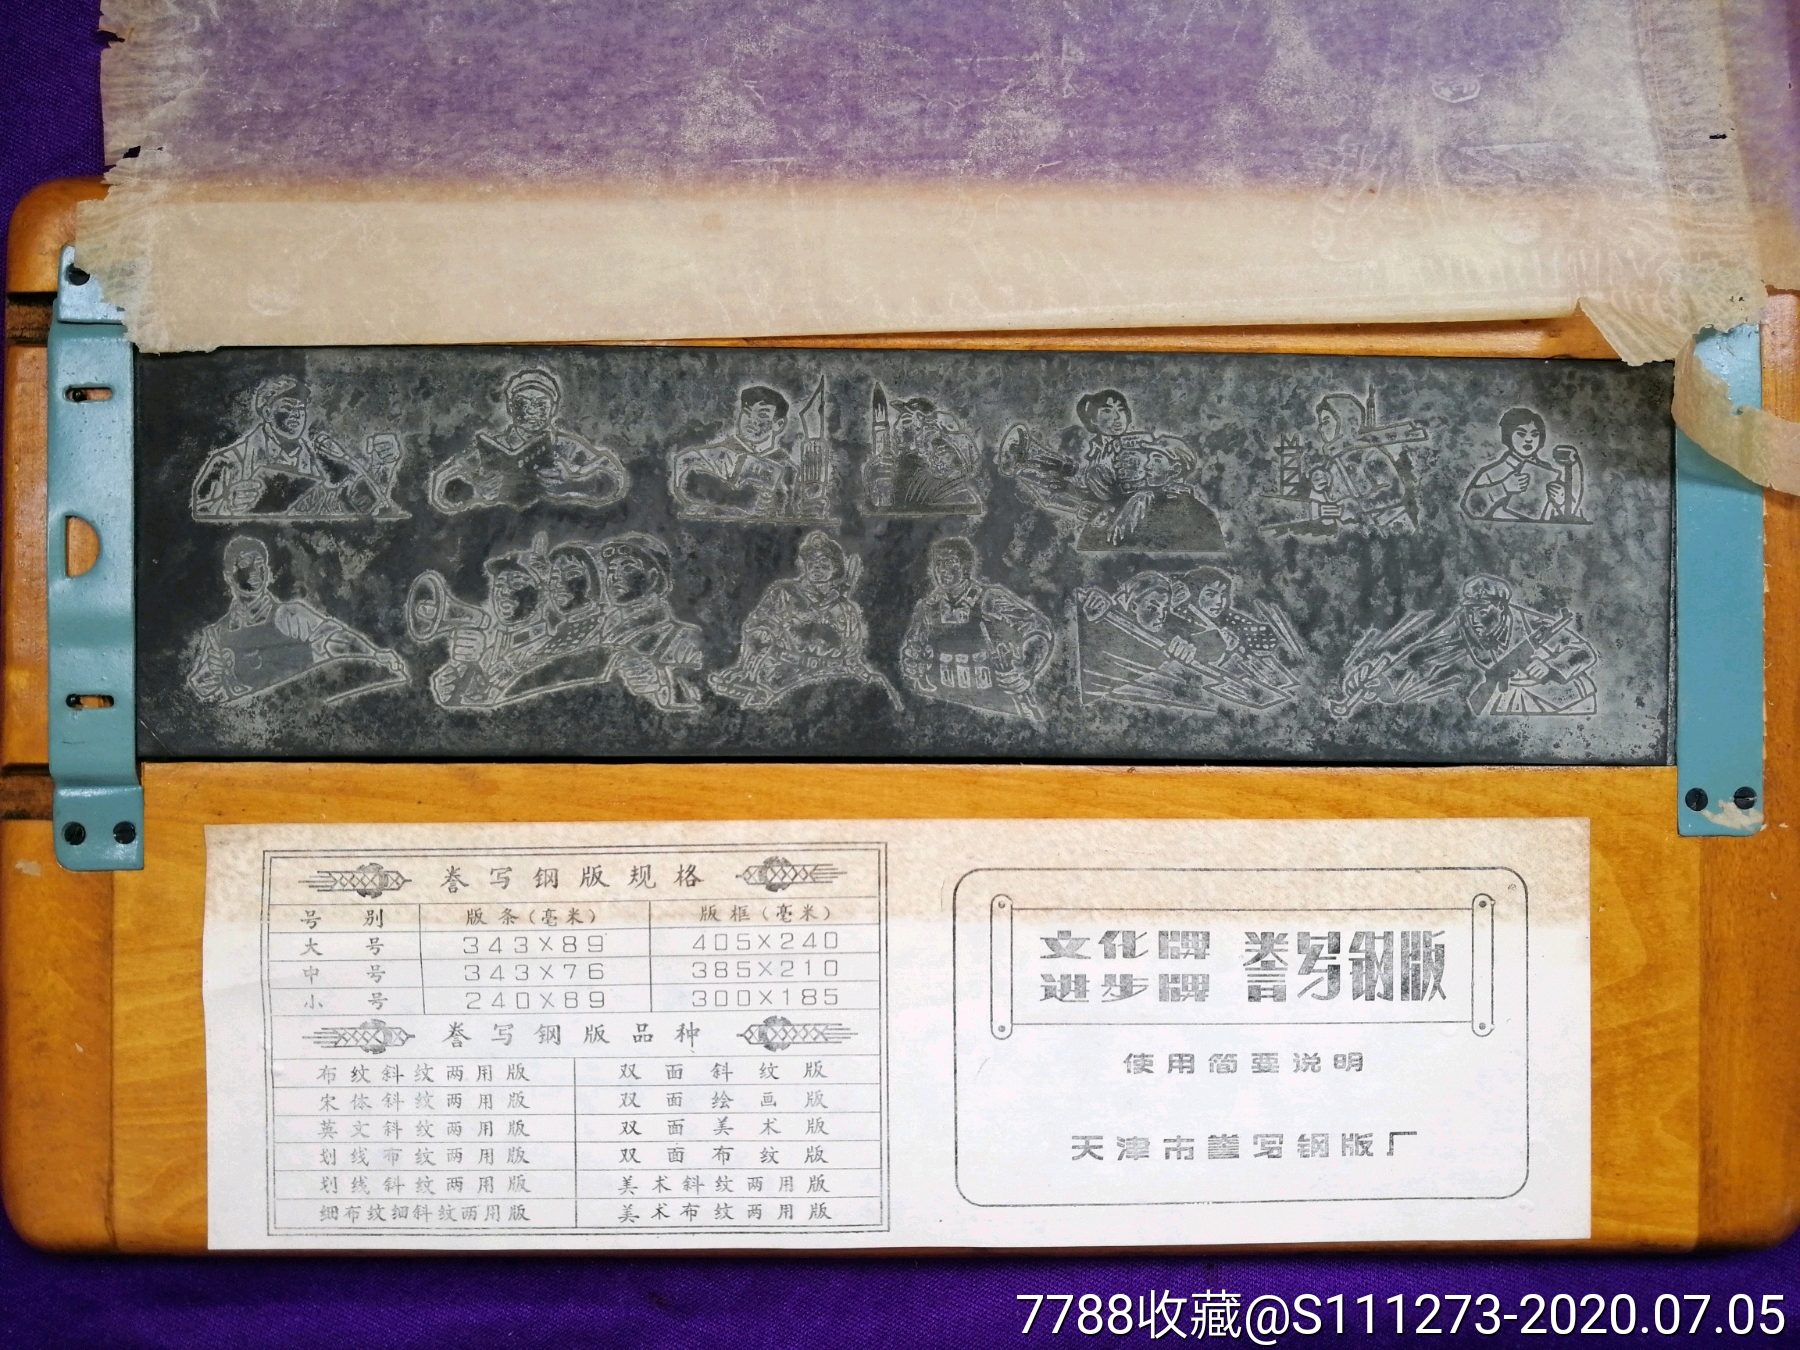 誊写钢版规格
号别 版条(毫米) 版框(毫米)
大号 343×89 405×240
中号 343×76 385×210
小号 240×89 300×185
誊写钢版品种
布纹斜纹两用版 双面斜纹版
宋体斜纹两用版 双面绘画版
英文斜纹两用版 双面美术版
划线布纹两用版 双面布纹版
划线斜纹两用版 美术斜纹两用版
细布纹细斜纹两用版 美术布纹两用版
文化牌
进步牌
誊写钢版
使用简要说明
天津市誊写钢版厂
7788收藏@S111273-2020.07.05